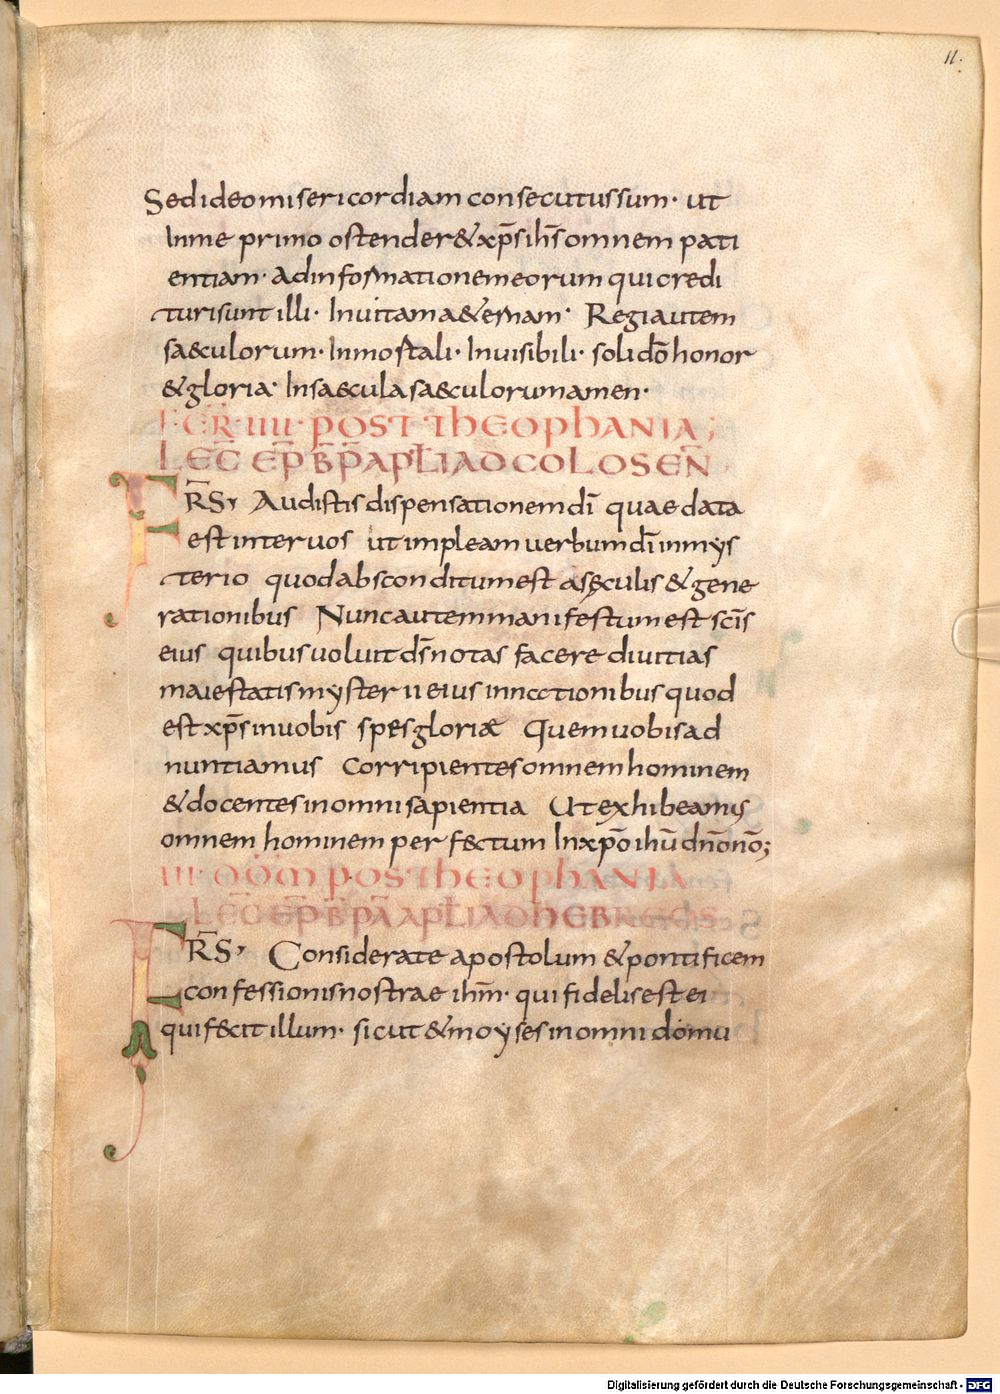 11.
Sed ideo misericordiam consecutus sum· ut
In me primo ostender& xp̄s ih̄s omnem pati
entiam· Ad informationem eorum qui credi
turi sunt illi· In uitam a&ernam· Regi autem
saeculorum· Inmortali· Inuisibili· soli dō honor
& gloria· In saecula saeculorum amen·
FER̄· IIII· POST THEOPHANIA;
LEC̄ EP̄ B̄ P̄ APL̄I AD COLOSEN̄
FR̄S· Audistis dispensationem dī quae data
est inter uos ut impleam uerbum dī in mys
terio quod absconditum est a sęculis & gene
rationibus Nunc autem manifestum est sc̄is
eius quibus uoluit ds̄ notas facere diuitias
maiestatis mysterii eius in nationibus quod
est xp̄s in uobis spes gloriae Quem uobis ad
nuntiamus Corripientes omnem hominem
& docentes in omni sapientia Ut exhibeamus
omnem hominem perfectum In xp̄o ihū dn̄o nō;
III· DOM̄ POS THEOPHANIA
LEC̄ EP̄ B̄ PA APL̄I AD HEBREOS
FR̄S· Considerate apostolum & pontificem
confessionis nostrae ih̄m· qui fidelis est ei
qui fecit illum· sicut & moyses in omni domu
Digitalisierung gefördert durch die Deutsche Forschungsgemeinschaft - DFG